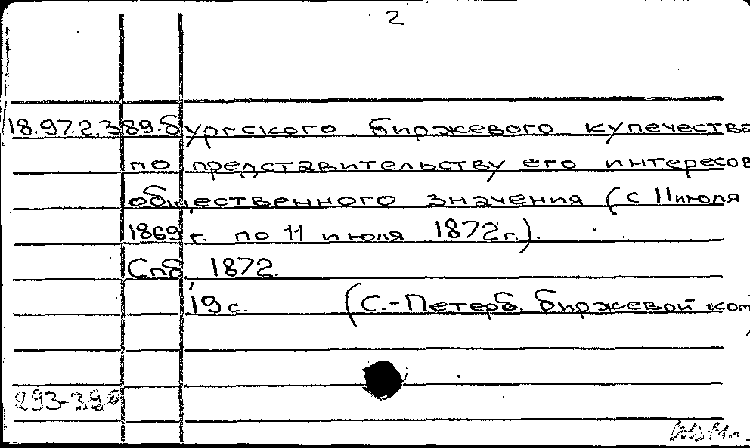 2
18.97.2.389. бургского биржевого купечества
по представительству его интересов
общественного значения (с 11 июля
1869 г. по 11 июля 1872 г.).
Спб. 1872.
19 с. (С.-Петерб. биржевой ком